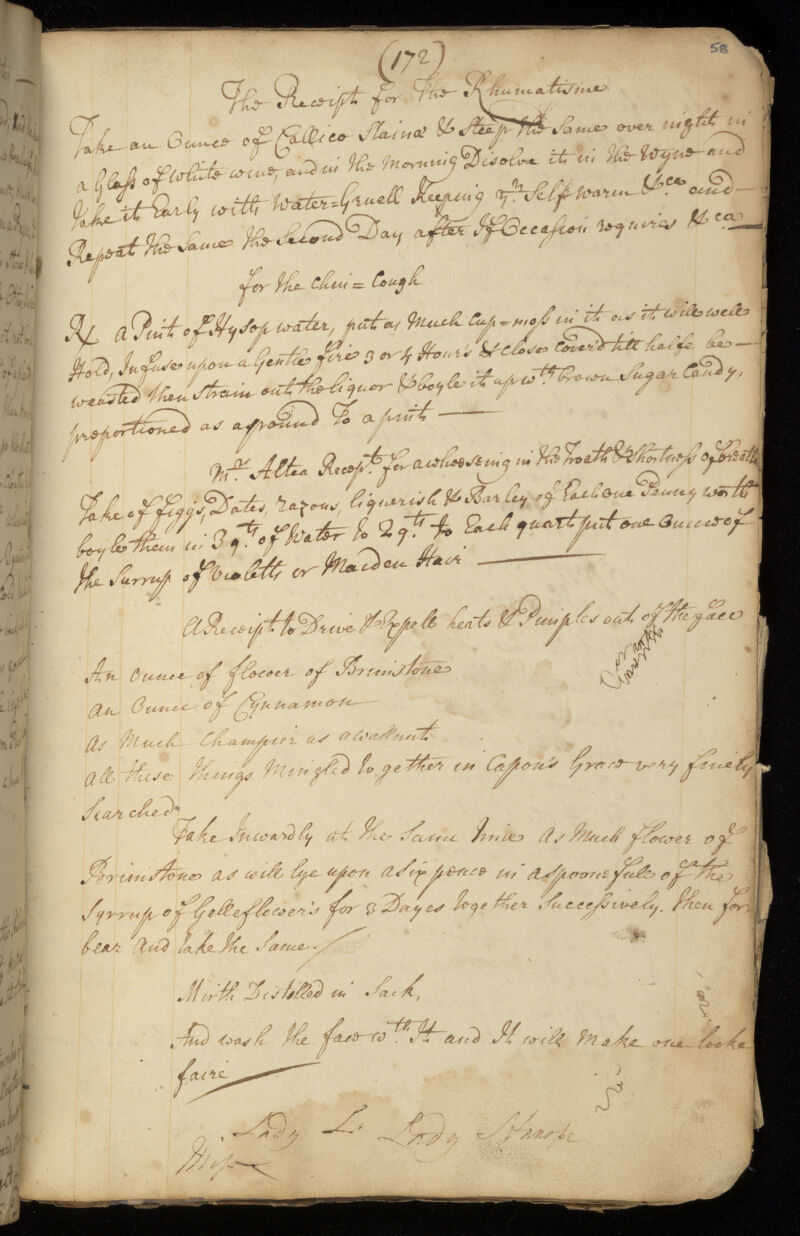 58
(172)
The Receipt for the Rhumatisme
Take an Ounce of Callico Plaina & Steep the Same over night in
a Glass of white wine, and in the Morning Disolve it in the Wyne and
take it Early with Water=Gruell Keeping yr. Self warm &ca and
Repeat the Same the Second Day after If Occassion requires &ca
for the Chin=Cough
Rx a Pint of Hysop water, put as Much Cup=moss in it as it will well
Hold, Infuse upon a Gentle fire 3 or 4 Hour's & close Cover'd till halfe be
weasted then Strain out the liquor & boyle it up wth. brown Sugar Candy,
proportioned as a pound To a pint
Mrs. Altea Recept. for a wheeseing in the Troath & Shortness of breath
Take of figgs, Dates, razons, liquerish & Barley of Each one Penny worth
boyle them in 3 qts. of Water to 2 qts. to Each quart put one ounce of
the Surrup of Violetts or Maiden Hair
A Receipt to Drive & Expell heats & Pimples out of the face
An Ounce of flower of Brimstone
an Ounce of Cynnamon
as Much Champier as a wallnut
all these things Mingled together in Capon's Greace very finely
Searched
Take Inwardly at the Same time as Much flower of
Brimstone as will lye upon a six pence in a spoonefull of the
Syrrup of Gelleflower's for 3 Dayes together Successively. then for
bear and take the Same.
Mirth Distelled in Sack,
And wash the face wth. It and It will Make one looke
faire
Lady Lady Stanope
Miss